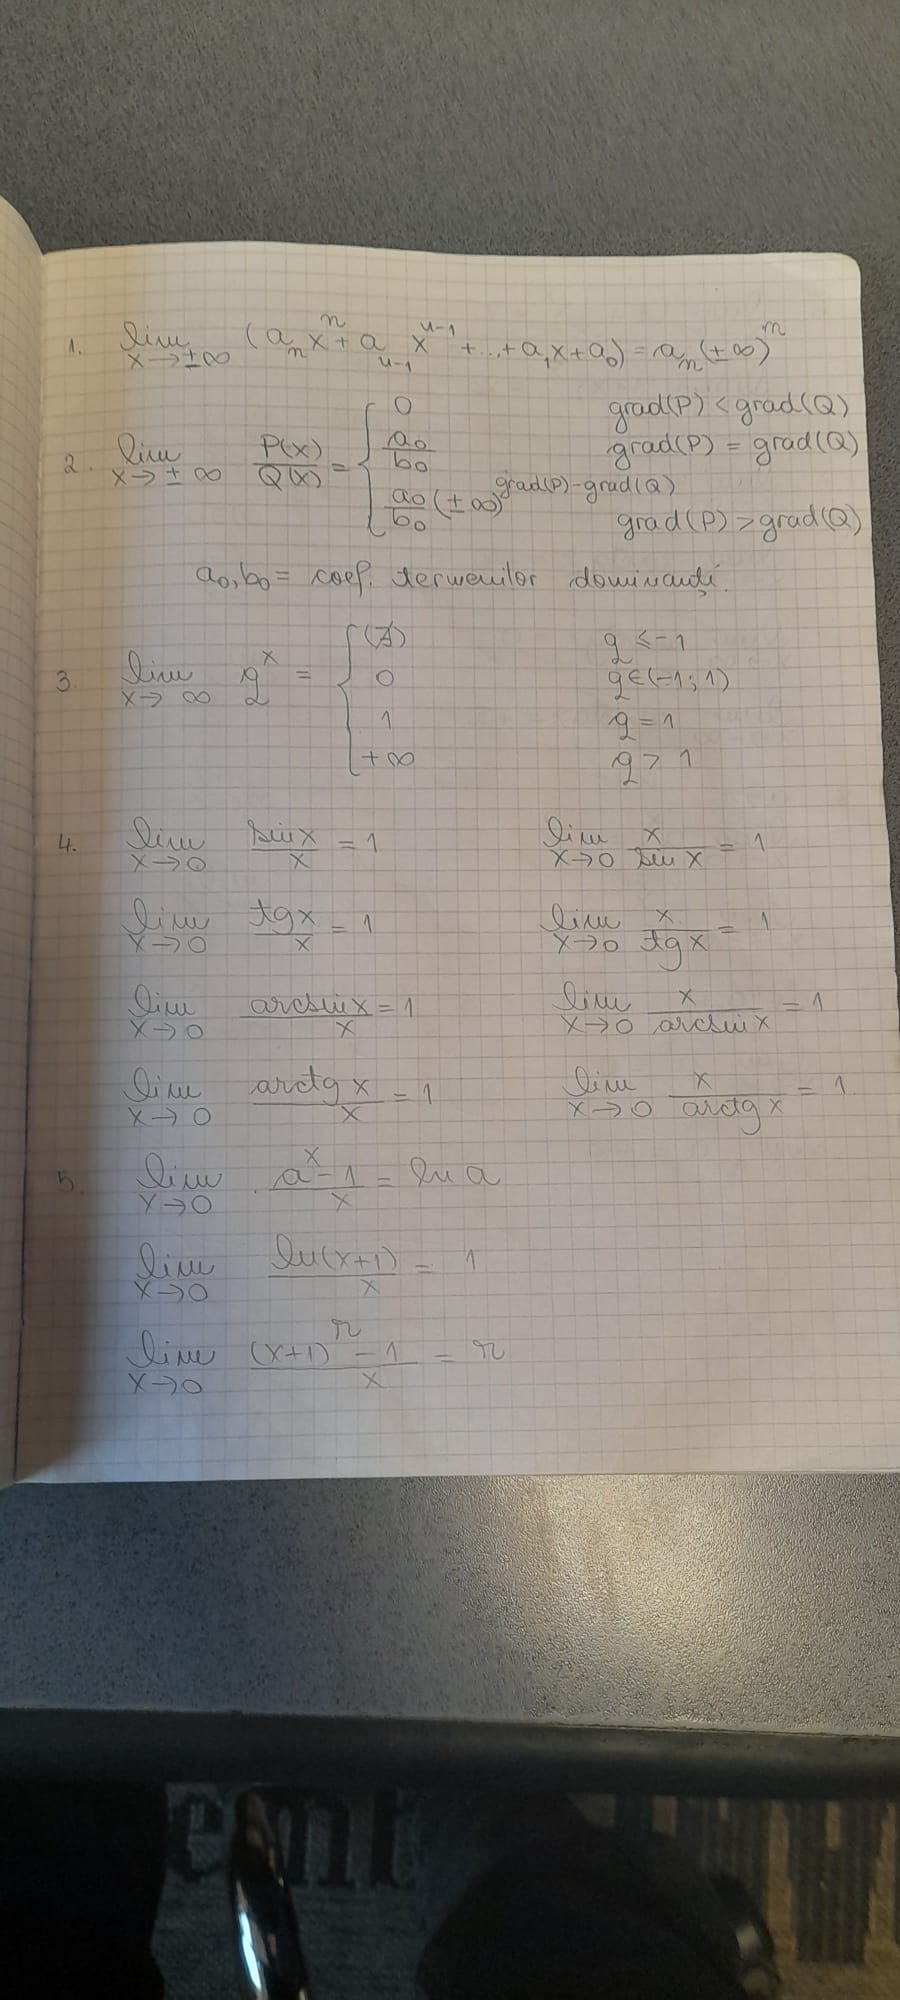 1. lim x→±∞ (aₙxⁿ + aₙ₋₁xⁿ⁻¹ + ... + a₁x + a₀) = aₙ(±∞)ⁿ
2. lim x→±∞ P(x)/Q(x) = { 0 grad(P) < grad(Q)
a₀/b₀ grad(P) = grad(Q)
a₀/b₀ (±∞)^(grad(P)-grad(Q)) grad(P) > grad(Q)
a₀, b₀ = coef. termenilor dominanți.
3. lim x→∞ qˣ = { (∄) q ≤ -1
0 q ∈ (-1; 1)
1 q = 1
+∞ q > 1
4. lim x→0 sin x/x = 1 lim x→0 x/sin x = 1
lim x→0 tg x/x = 1 lim x→0 x/tg x = 1
lim x→0 arcsin x/x = 1 lim x→0 x/arcsin x = 1
lim x→0 arctg x/x = 1 lim x→0 x/arctg x = 1
5. lim x→0 (aˣ - 1)/x = ln a
lim x→0 ln(x+1)/x = 1
lim x→0 ((x+1)ʳ - 1)/x = r